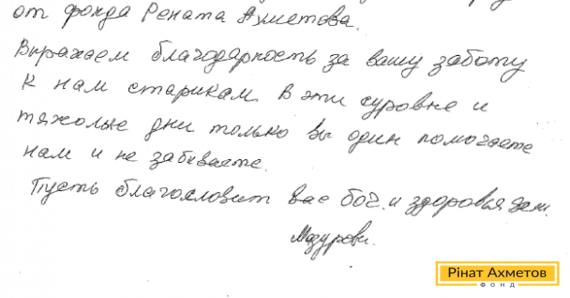 от фонда Рената Ахметова.
Выражаем благодарность за вашу заботу
к нам старикам. В эти суровые и
тяжолые дни только вы один помогаете
нам и не забываете.
Пусть благословит вас бог. и здоровья
Мазурови.
Рінат Ахметов
ФОНД